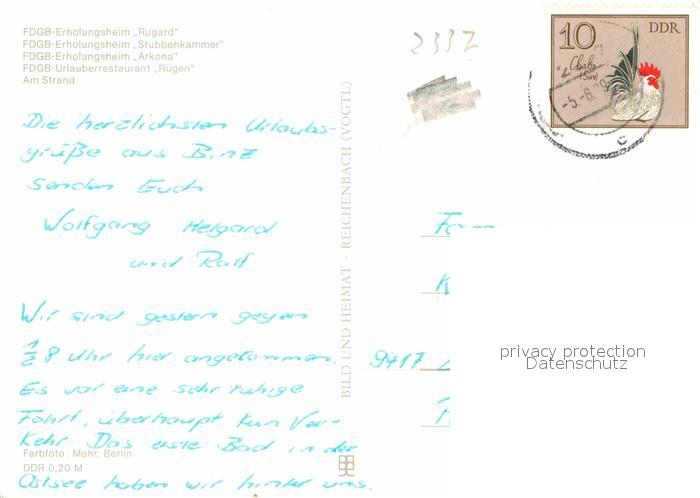 FDGB-Erholungsheim „Rugard"
FDGB-Erholungsheim „Stubbenkammer"
FDGB-Erholungsheim „Arkona"
FDGB-Urlauberrestaurant „Rügen"
Am Strand
Die herzlichsten Urlaubs-
grüße aus Binz
senden Euch
Wolfgang Helgard
und Ralf
Wir sind gestern gegen
½ 8 Uhr hier angekommen.
Es war eine sehr ruhige
Fahrt, überhaupt kein Ver-
kehr Das erste Bad in der
Ostsee haben wir hinter uns.
Farbfoto: Mohr, Berlin
DDR 0,20 M
BILD UND HEIMAT · REICHENBACH (VOGTL)
10 DDR
Chabo
-5.-6.
c
Fam
K
9417
privacy protection
Datenschutz